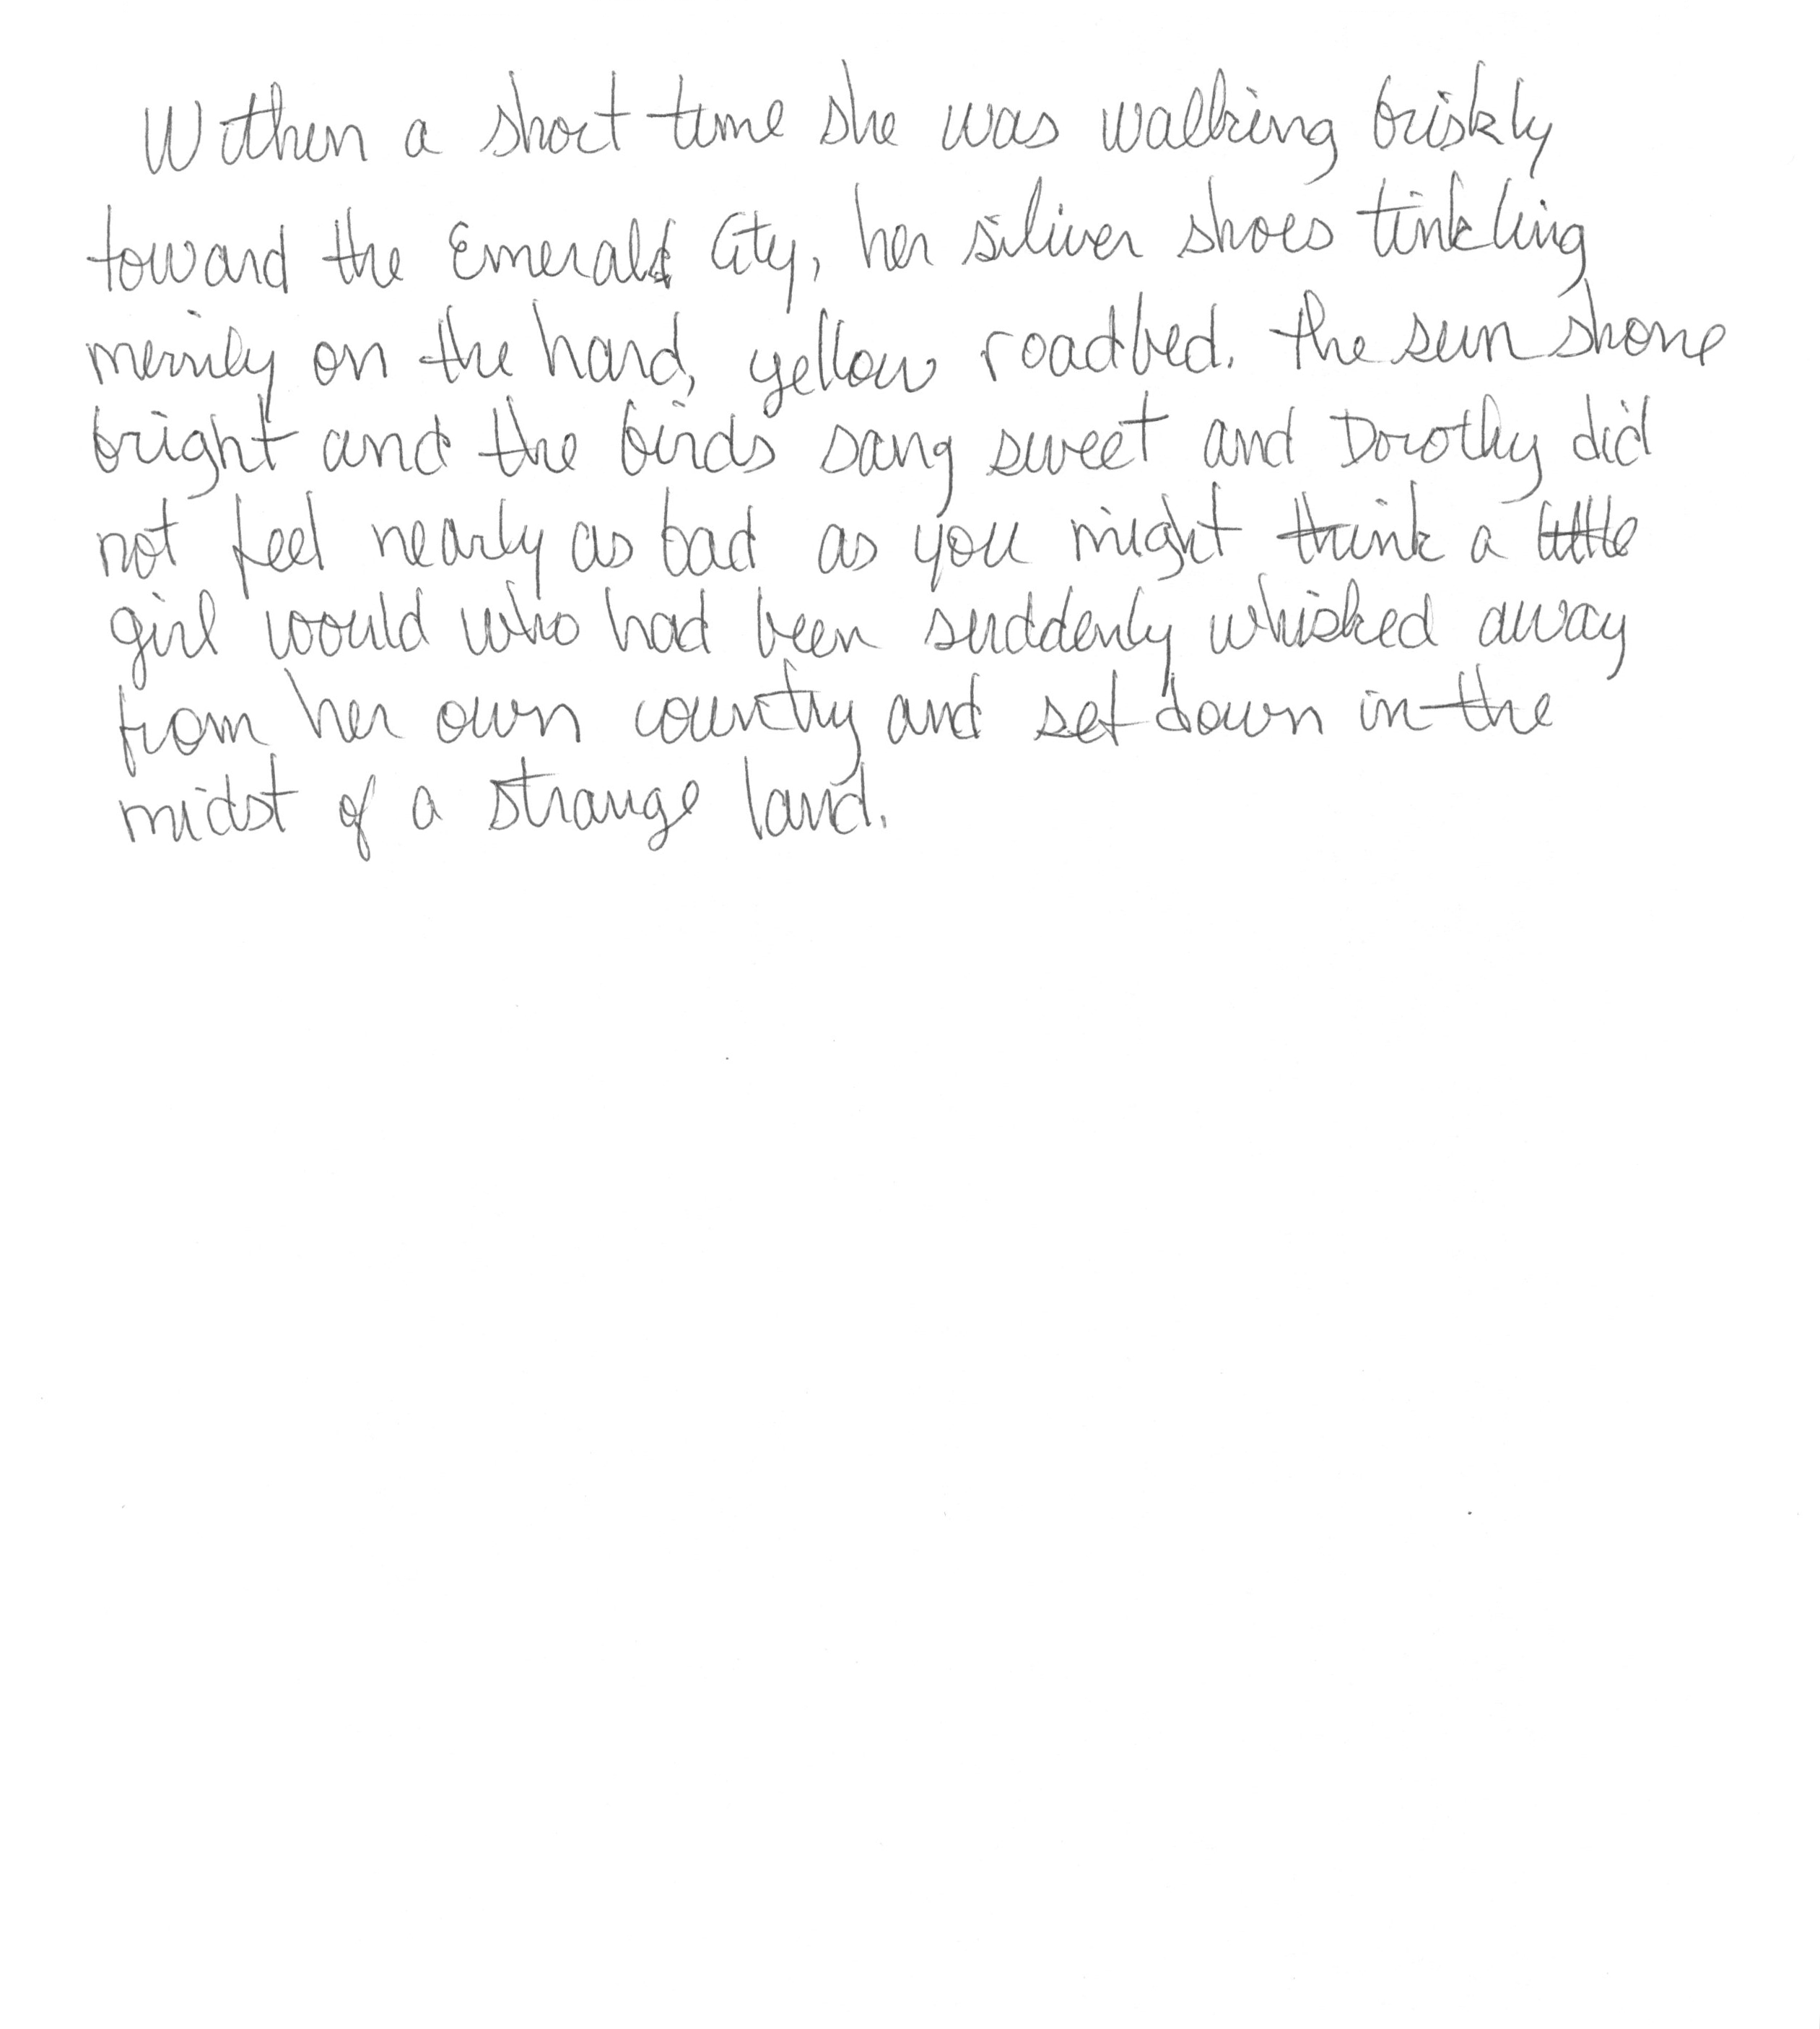 Within a short time she was walking briskly
toward the Emerald City, her siliver shoes tinkling
merrily on the hard, yellow roadbed. the sun shone
bright and the birds sang sweet and Dorothy did
not feel nearly as bad as you might think a little
girl would who had been suddenly whisked away
from her own country and set down in the
midst of a strange land.